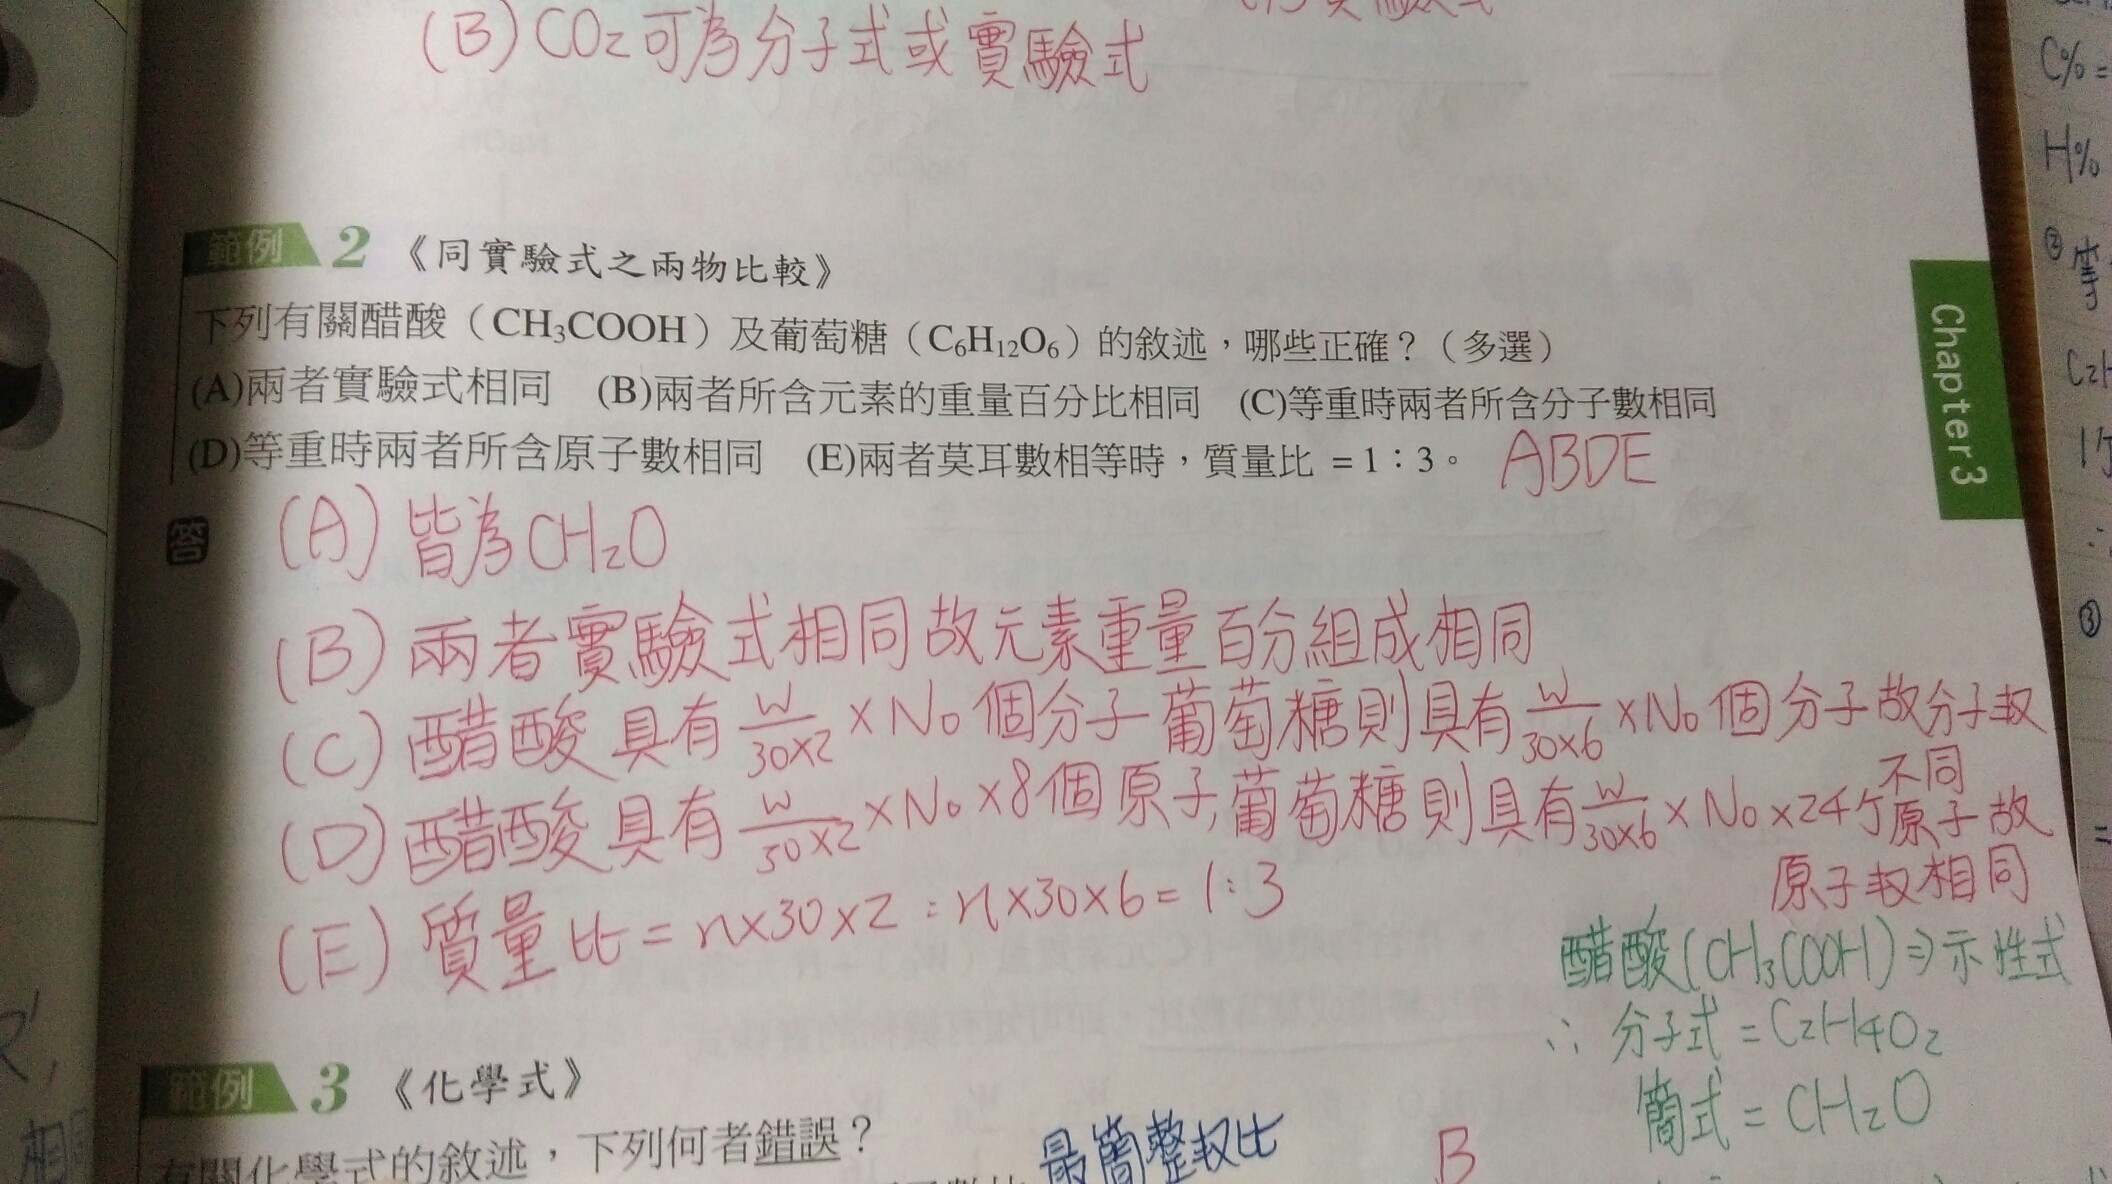 (B) CO₂可為分子式或實驗式
C% =
H%
範例 2 《同實驗式之兩物比較》
下列有關醋酸（CH₃COOH）及葡萄糖（C₆H₁₂O₆）的敘述，哪些正確？（多選）
(A)兩者實驗式相同 (B)兩者所含元素的重量百分比相同 (C)等重時兩者所含分子數相同
(D)等重時兩者所含原子數相同 (E)兩者莫耳數相等時，質量比 = 1：3。 ABDE
Chapter 3
答
(A) 皆為CH₂O
(B) 兩者實驗式相同故元素重量百分組成相同
(C) 醋酸具有 W/30×2 × N₀ 個分子葡萄糖則具有 W/30×6 × N₀ 個分子故分子数
不同
(D) 醋酸具有 W/30×2 × N₀ × 8個原子,葡萄糖則具有 W/30×6 × N₀ × 24个原子故
原子数相同
(E) 質量比 = n×30×2 : n×30×6 = 1:3
醋酸(CH₃COOH)⇒示性式
∴ 分子式 = C₂H₄O₂
簡式 = CH₂O
範例 3 《化學式》
有關化學式的敘述，下列何者錯誤？
最簡整数比
B
②等
③